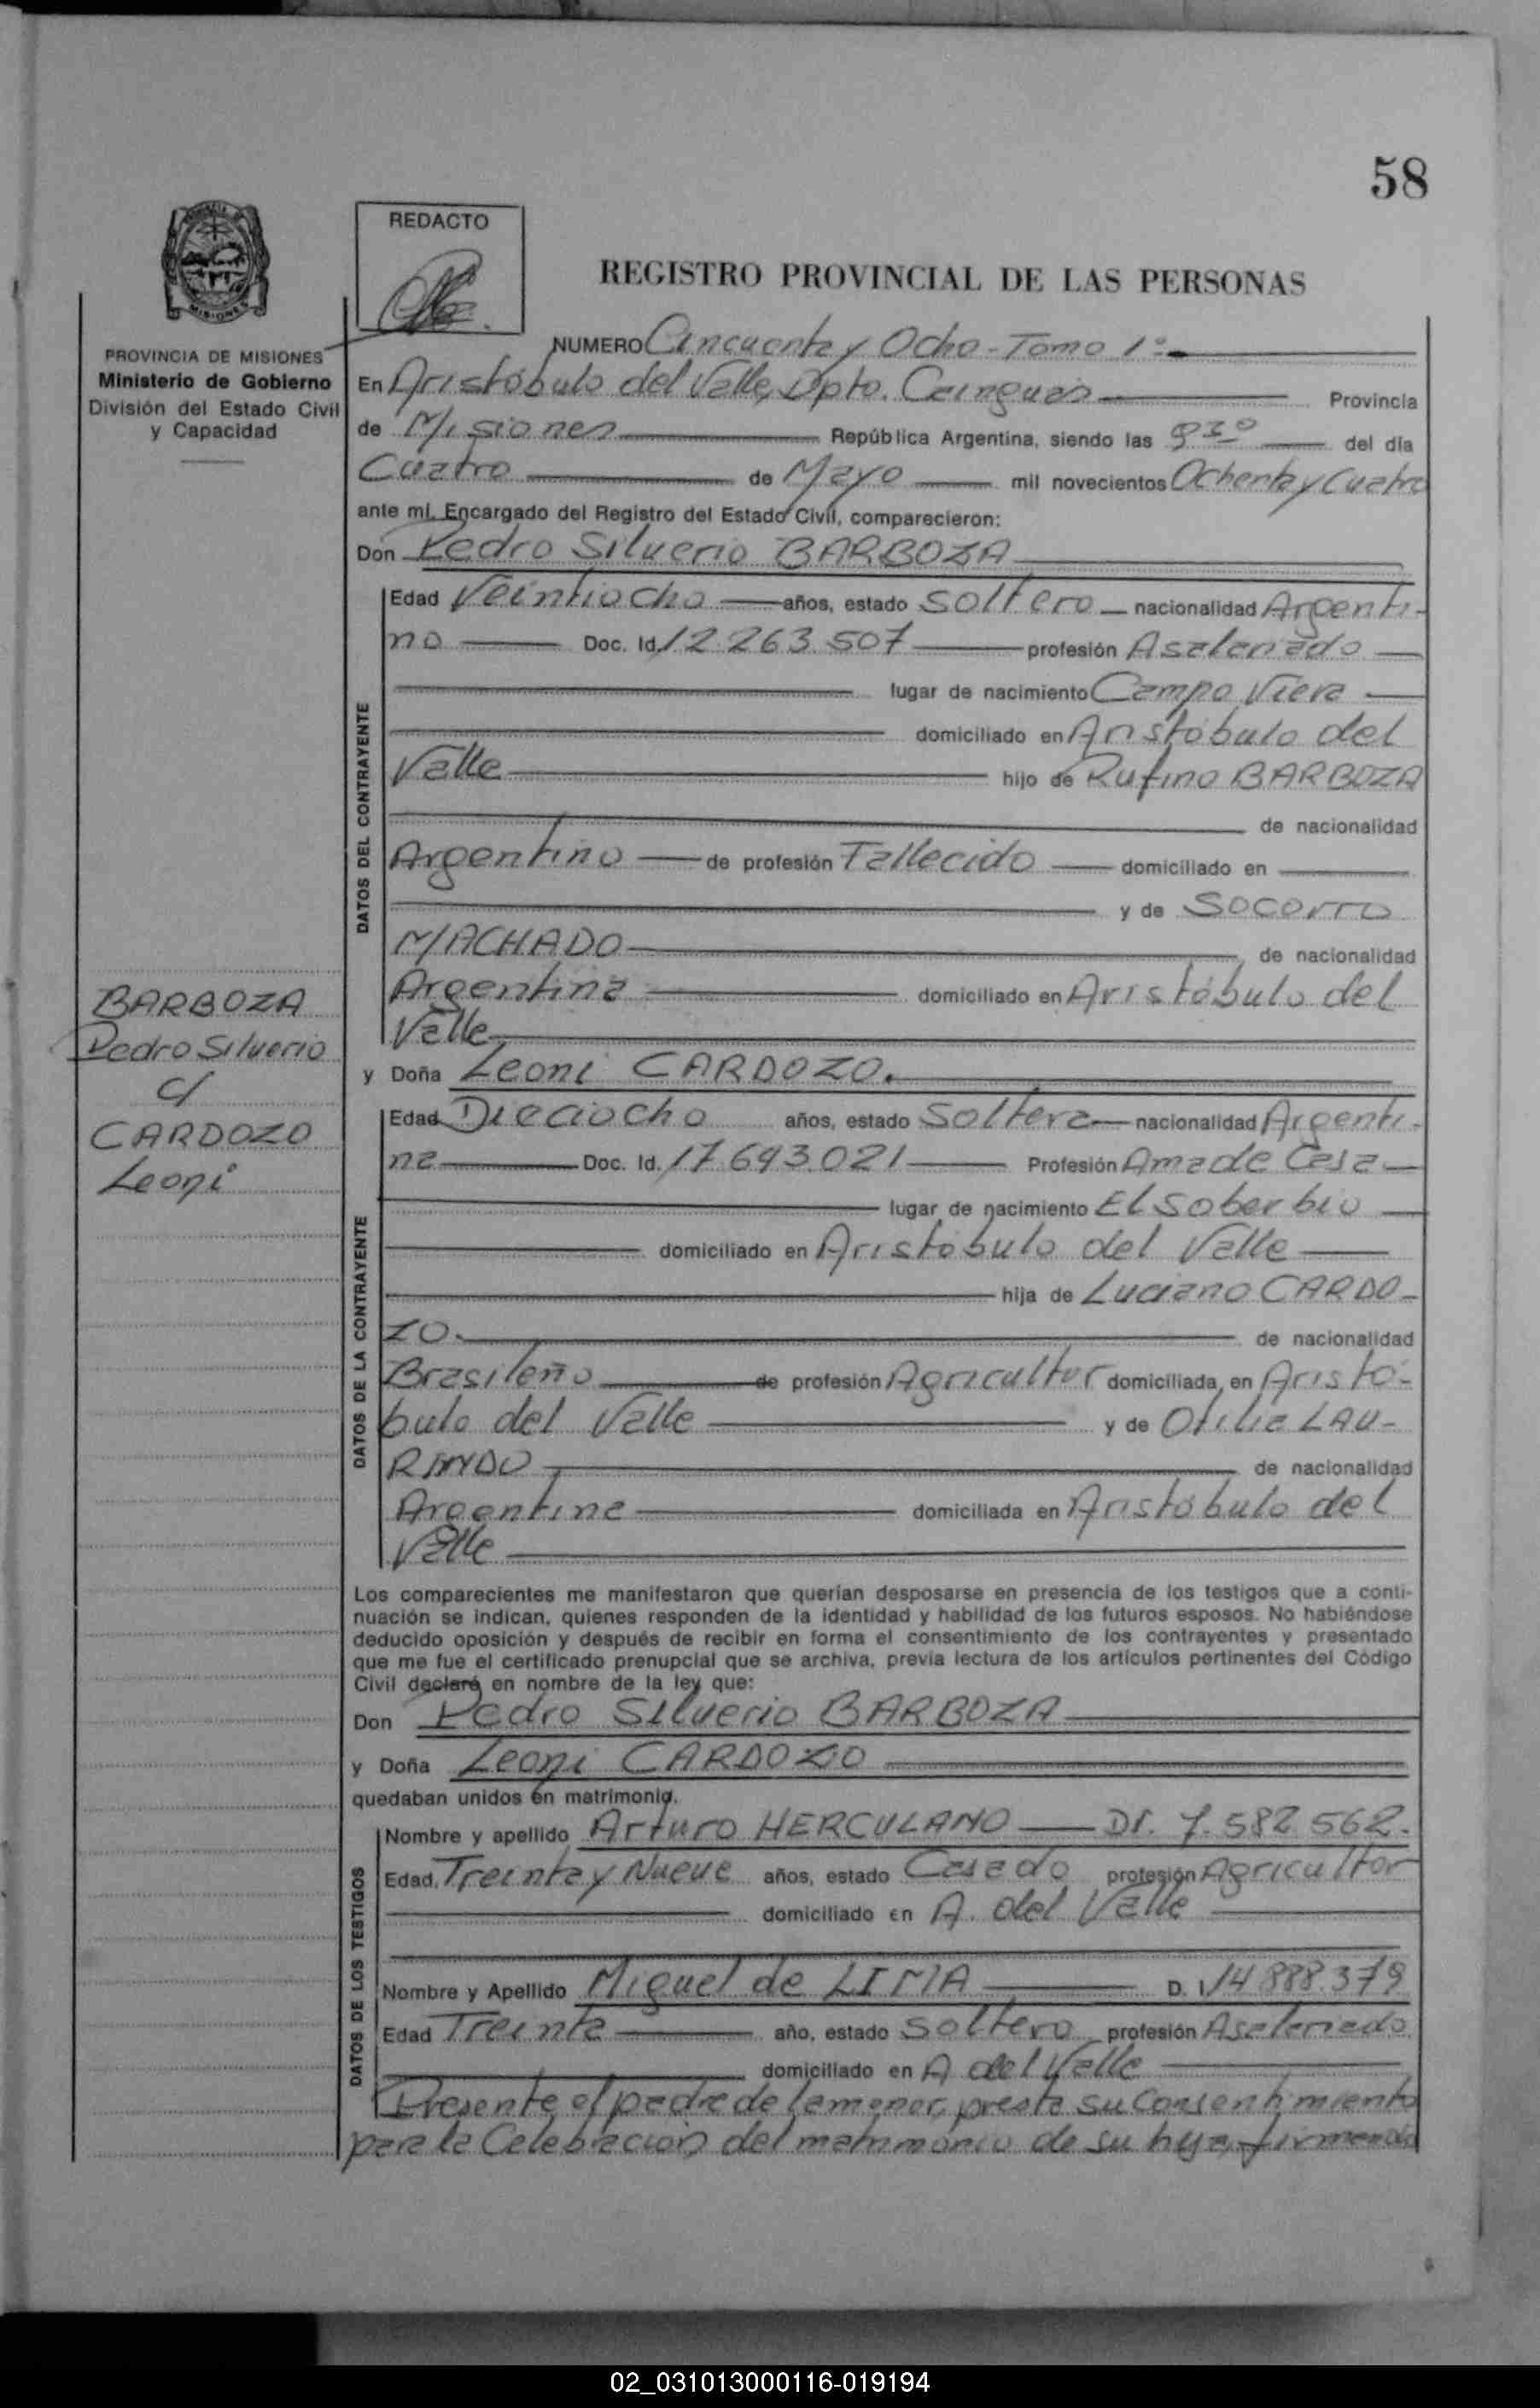 58
REDACTO
REGISTRO PROVINCIAL DE LAS PERSONAS
PROVINCIA DE MISIONES
Ministerio de Gobierno
División del Estado Civil
y Capacidad
NUMERO Cincuenta y Ocho - Tomo 1º
En Aristóbulo del Valle, Dpto. Cainguás Provincia
de Misiones República Argentina, siendo las 9 30 del día
Cuatro de Mayo mil novecientos Ochenta y Cuatro
ante mí, Encargado del Registro del Estado Civil, comparecieron:
Don Pedro Silverio BARBOZA
Edad Veintiocho años, estado Soltero nacionalidad Argenti-
no Doc. Id. 12.263.507 profesión Asalariado
lugar de nacimiento Campo Viera
domiciliado en Aristóbulo del
Valle hijo de Rufino BARBOZA
de nacionalidad
Argentino de profesión Fallecido domiciliado en
y de Socorro
MACHADO de nacionalidad
Argentina domiciliado en Aristóbulo del
Valle
DATOS DEL CONTRAYENTE
BARBOZA
Pedro Silverio
c/
CARDOZO
Leoni
y Doña Leoni CARDOZO.
Edad Dieciocho años, estado Soltera nacionalidad Argenti-
na Doc. Id. 17.693.021 Profesión Ama de Casa
lugar de nacimiento El Soberbio
domiciliado en Aristóbulo del Valle
hija de Luciano CARDO-
ZO. de nacionalidad
Brasileño de profesión Agricultor domiciliada en Aristó-
bulo del Valle y de Otilia LAU-
RINDO de nacionalidad
Argentina domiciliada en Aristóbulo del
Valle
DATOS DE LA CONTRAYENTE
Los comparecientes me manifestaron que querían desposarse en presencia de los testigos que a conti-
nuación se indican, quienes responden de la identidad y habilidad de los futuros esposos. No habiéndose
deducido oposición y después de recibir en forma el consentimiento de los contrayentes y presentado
que me fue el certificado prenupcial que se archiva, previa lectura de los artículos pertinentes del Código
Civil declaré en nombre de la ley que:
Don Pedro Silverio BARBOZA
y Doña Leoni CARDOZO
quedaban unidos en matrimonio.
Nombre y apellido Arturo HERCULANO DI. 7.582.562.
Edad, Treinta y Nueve años, estado Casado profesión Agricultor
domiciliado en A. del Valle
Nombre y Apellido Miguel de LIMA D. I. 14.888.379
Edad Treinta año, estado Soltero profesión Asalariado
domiciliado en A del Valle
DATOS DE LOS TESTIGOS
Presente el padre de la menor, presta su Consentimiento
para la Celebracion del matrimonio de su hija, firmando
02_031013000116-019194